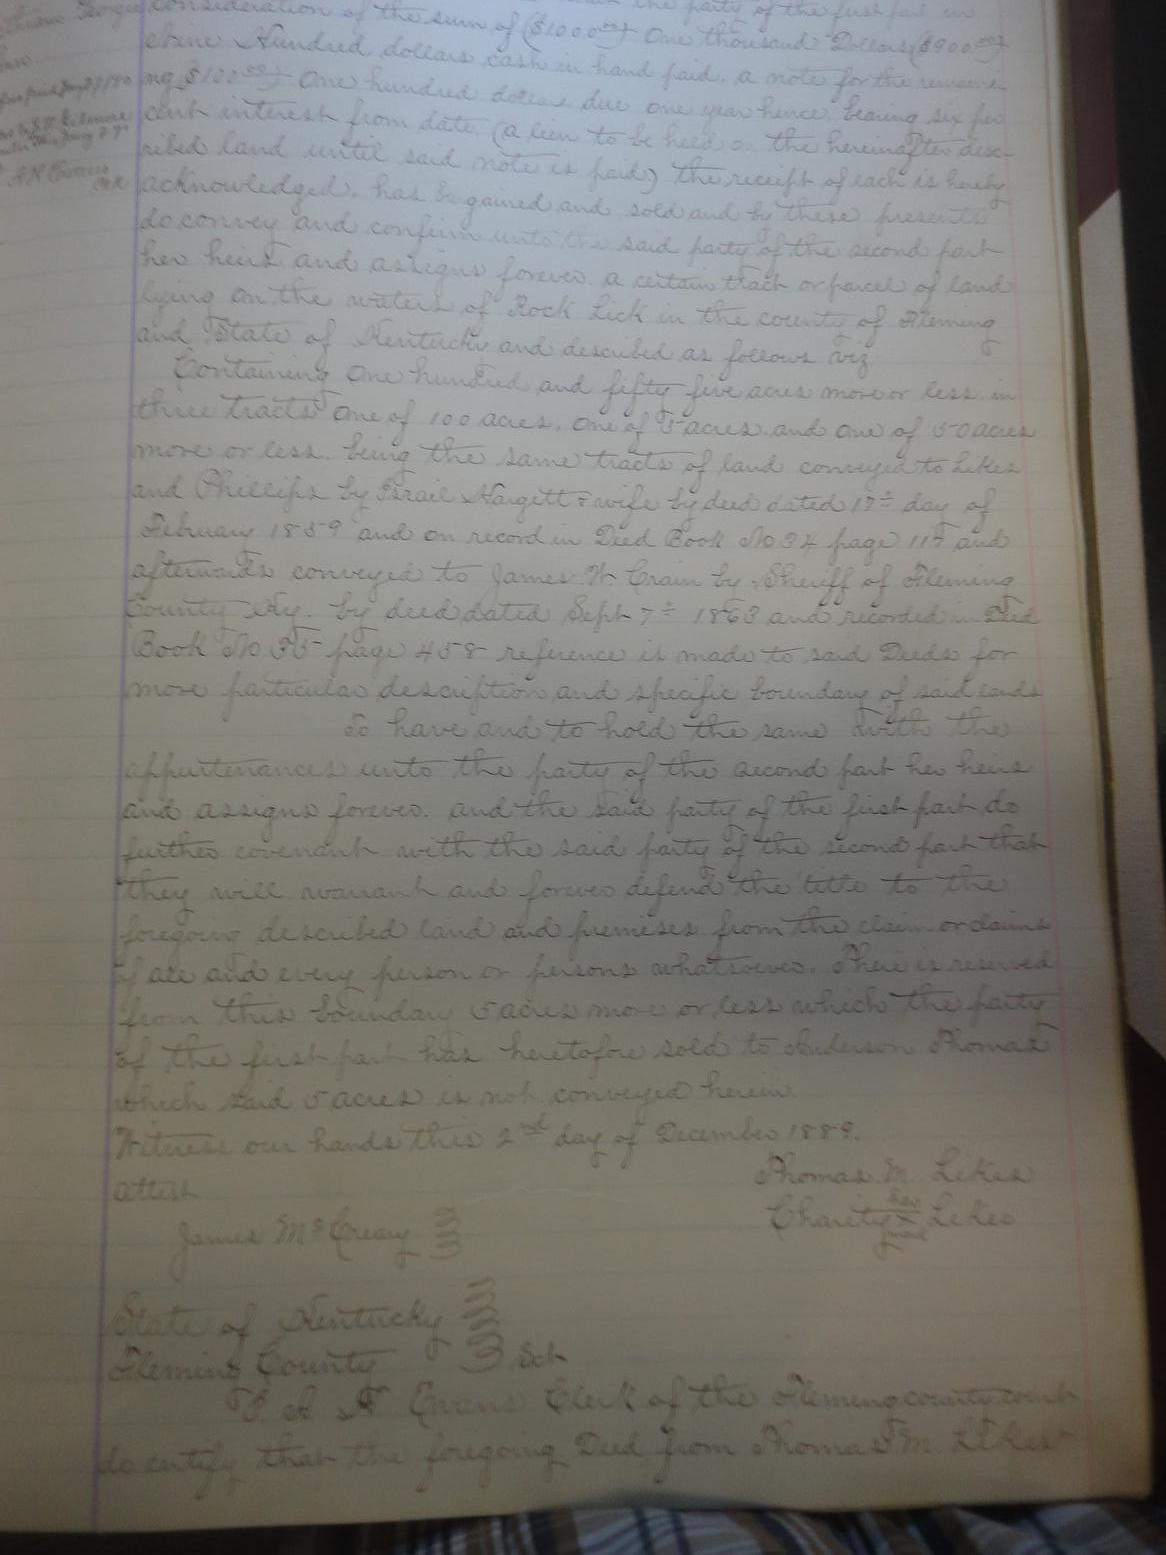 consideration of the sum of ($1000 00/) One thousand Dollars ($900 00/)
Hundred dollars cash in hand paid. a note for the remain
ng $100 00/ One hundred dollars due one year hence, bearing six per
cent interest from date, (a lien to be held on the hereinafter desc-
ribed land until said note is paid) the receipt of each is hereby
acknowledged. has bargained and sold and by these presents
do convey and confirm unto the said party of the second part
her heirs and assigns forever. a certain tract or parcel of land
lying on the waters of Rock Lick in the county of Fleming
and State of Kentucky and described as follows viz
Containing One hundred and fifty five acres more or less. in
three tracts One of 100 acres. One of 5 acres. and one of 50 acres
more or less. being the same tracts of land conveyed to Likes
and Phillips by Israil Hargett & wife by deed dated 17th day of
February 1859 and on record in Deed Book No 34 page 117 and
afterwards conveyed to James W Crain by Sheriff of Fleming
County Ky. by deed dated Sept 7th 1863 and recorded in Deed
Book No 35 page 458 reference is made to said Deeds for
more particular description and specific boundary of said lands
To have and to hold the same with the
appurtenances unto the party of the second part her heirs
and assigns forever. and the said party of the first part do
further covenant with the said party of the second part that
they will warrant and forever defend the title to the
foregoing described land and premises from the claim or claims
of all and every person or persons whatsoever. There is reserved
from this boundary 5 acres more or less which the party
of the first part has heretofore sold to Anderson Thomas
which said 5 acres is not conveyed herein.
Witness our hands this 2nd day of December 1889.
attest
Thomas M. Likes
James McCreary
Charity her x mark Likes
State of Kentucky
Fleming County Sct
I A F Evans Clerk of the Fleming county court
do certify that the foregoing Deed from Thomas M. Likes